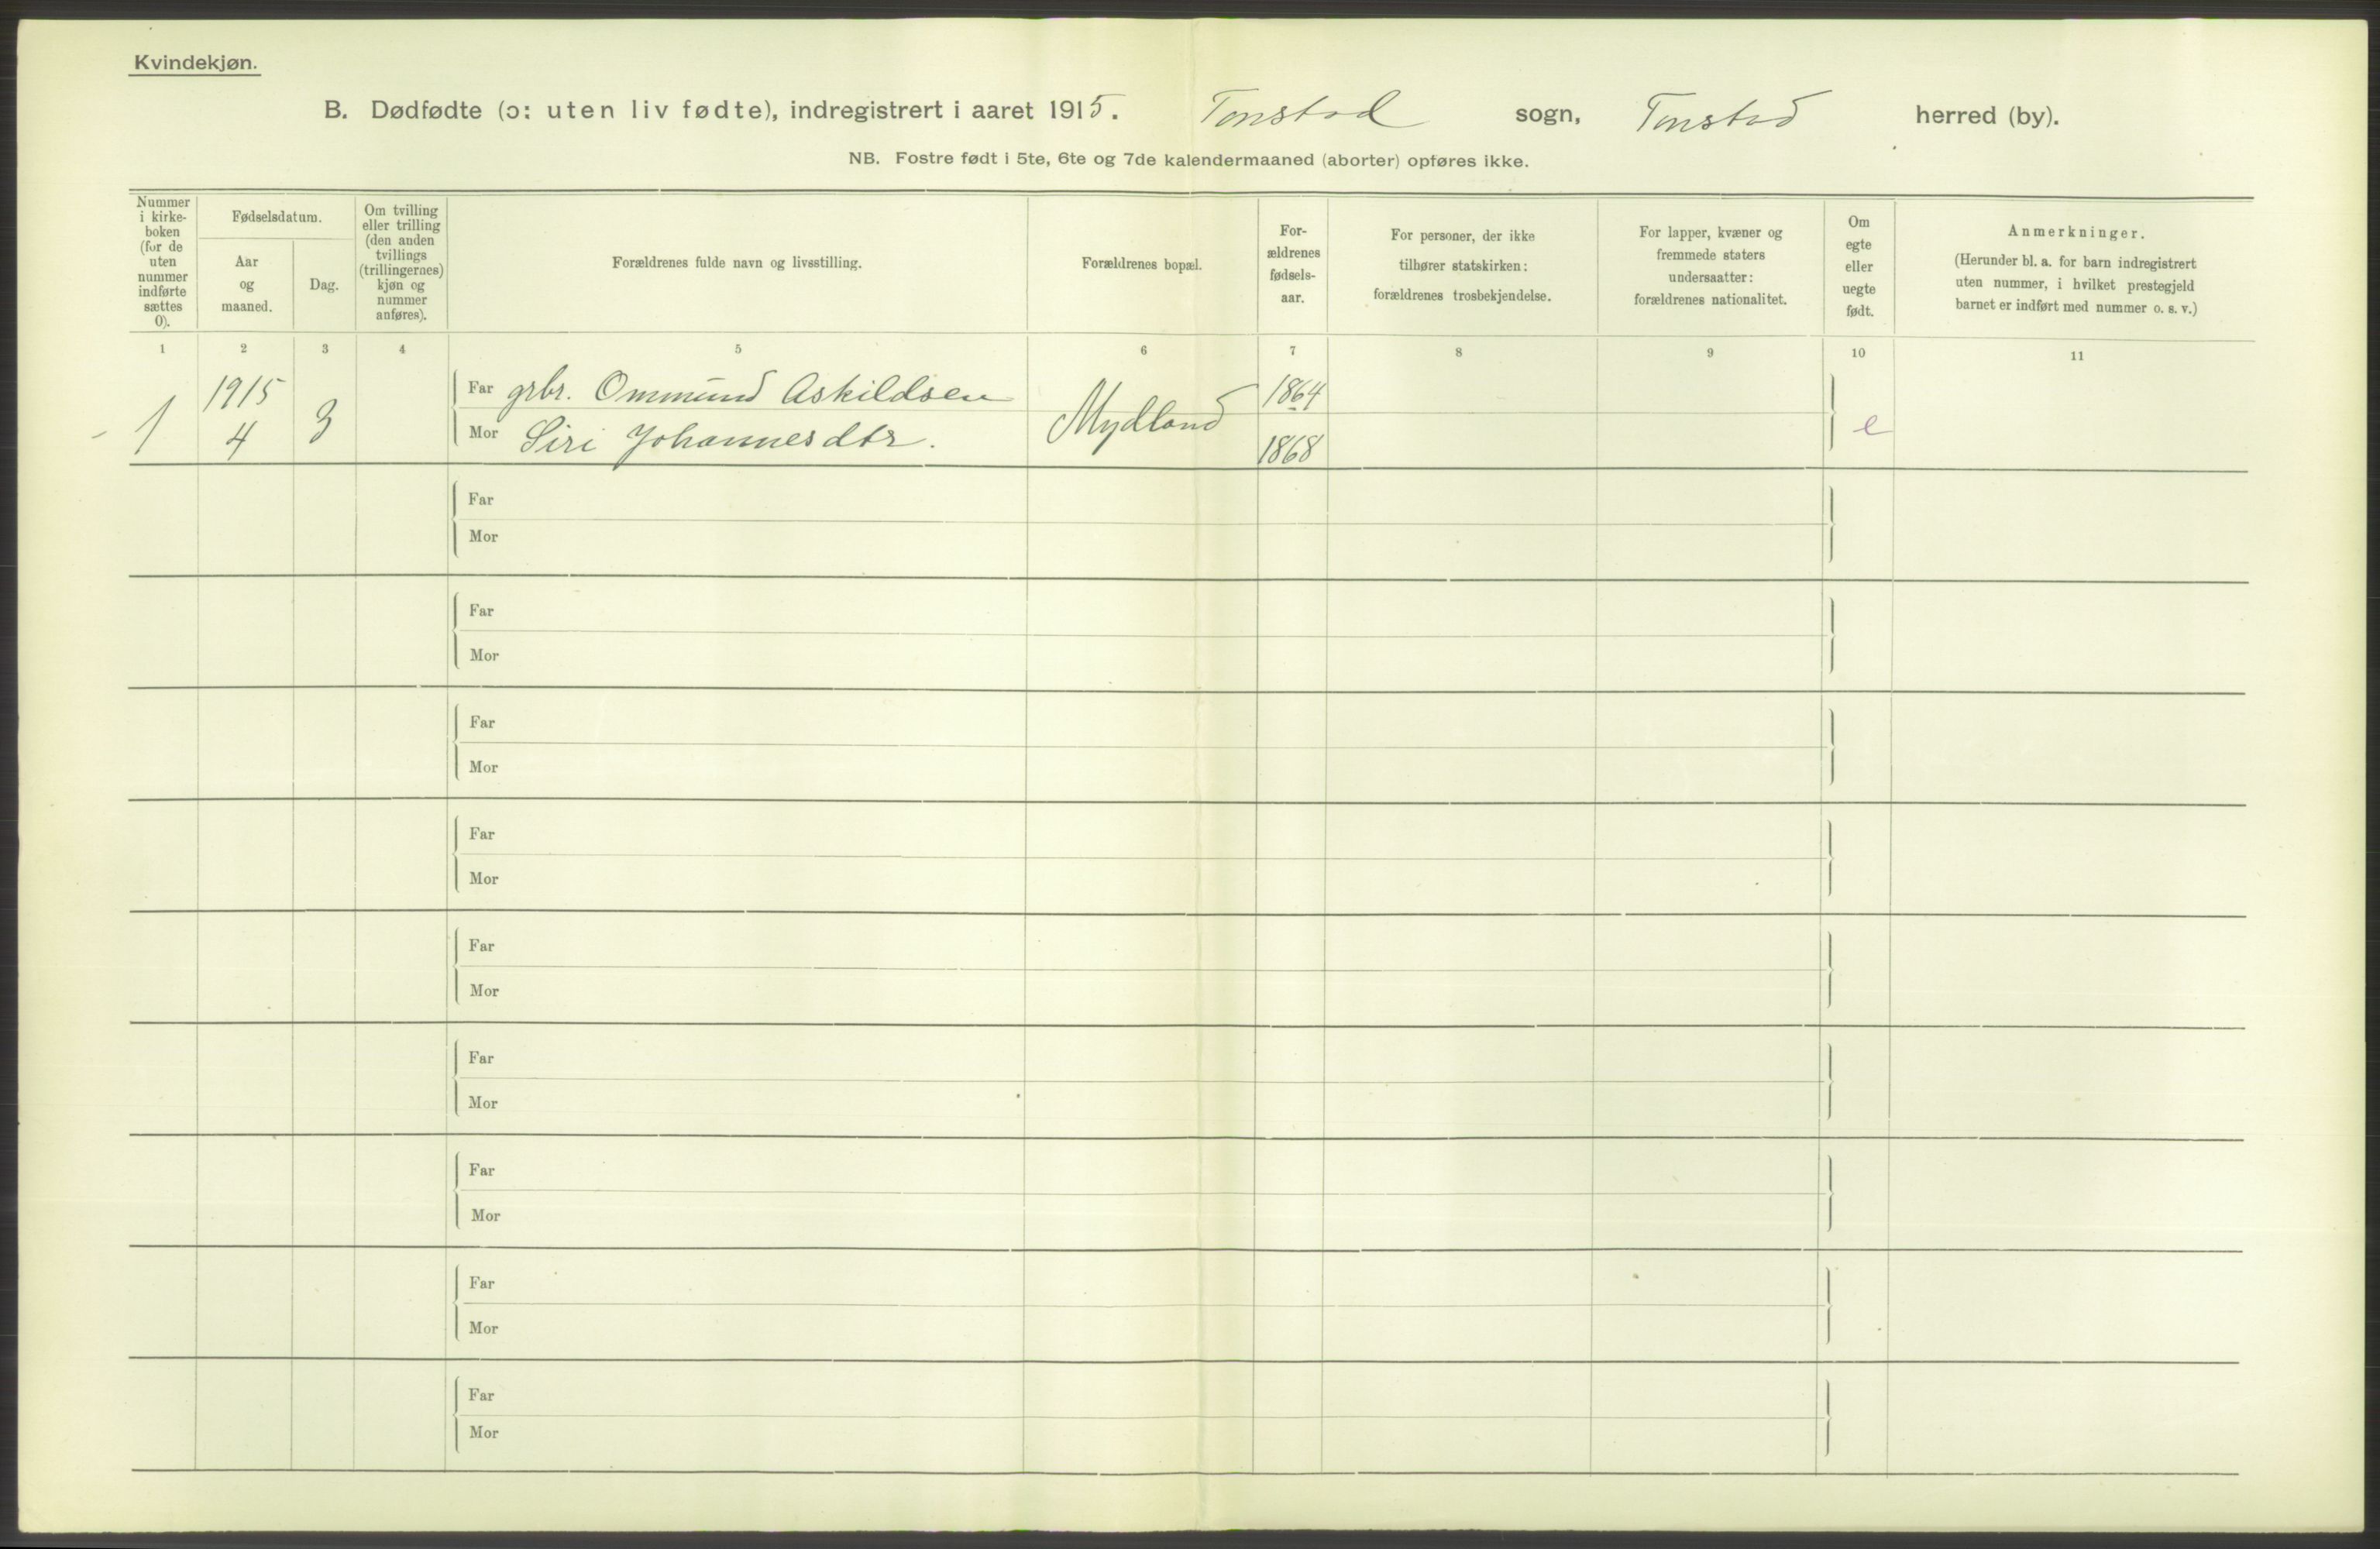 Kvindekjøn.
B. Dødfødte (ɔ: uten liv fødte), indregistrert i aaret 1915. Tonstad sogn, Tonstad herred (by).
NB. Fostre født i 5te, 6te og 7de kalendermaaned (aborter) opføres ikke.
Nummer
i kirke-
boken
(for de
uten
nummer
indførte
sættes
0).
Fødselsdatum.
Aar
og
maaned.
Dag.
Om tvilling
eller trilling
(den anden
tvillings
(trillingernes)
kjøn og
nummer
anføres).
Forældrenes fulde navn og livsstilling.
Forældrenes bopæl.
For-
ældrenes
fødsels-
aar.
For personer, der ikke
tilhører statskirken:
forældrenes trosbekjendelse.
For lapper, kvæner og
fremmede staters
undersaatter:
forældrenes nationalitet.
Om
egte
eller
uegte
født.
Anmerkninger.
(Herunder bl. a. for barn indregistrert
uten nummer, i hvilket prestegjeld
barnet er indført med nummer o. s. v.)
1 2 3 4 5 6 7 8 9 10 11
1 1915 4 3
Far grbr. Ommund Askildsen
Mor Siri Johannesdtr.
Mydland
1864
1868
e
Far
Mor
Far
Mor
Far
Mor
Far
Mor
Far
Mor
Far
Mor
Far
Mor
Far
Mor
Far
Mor